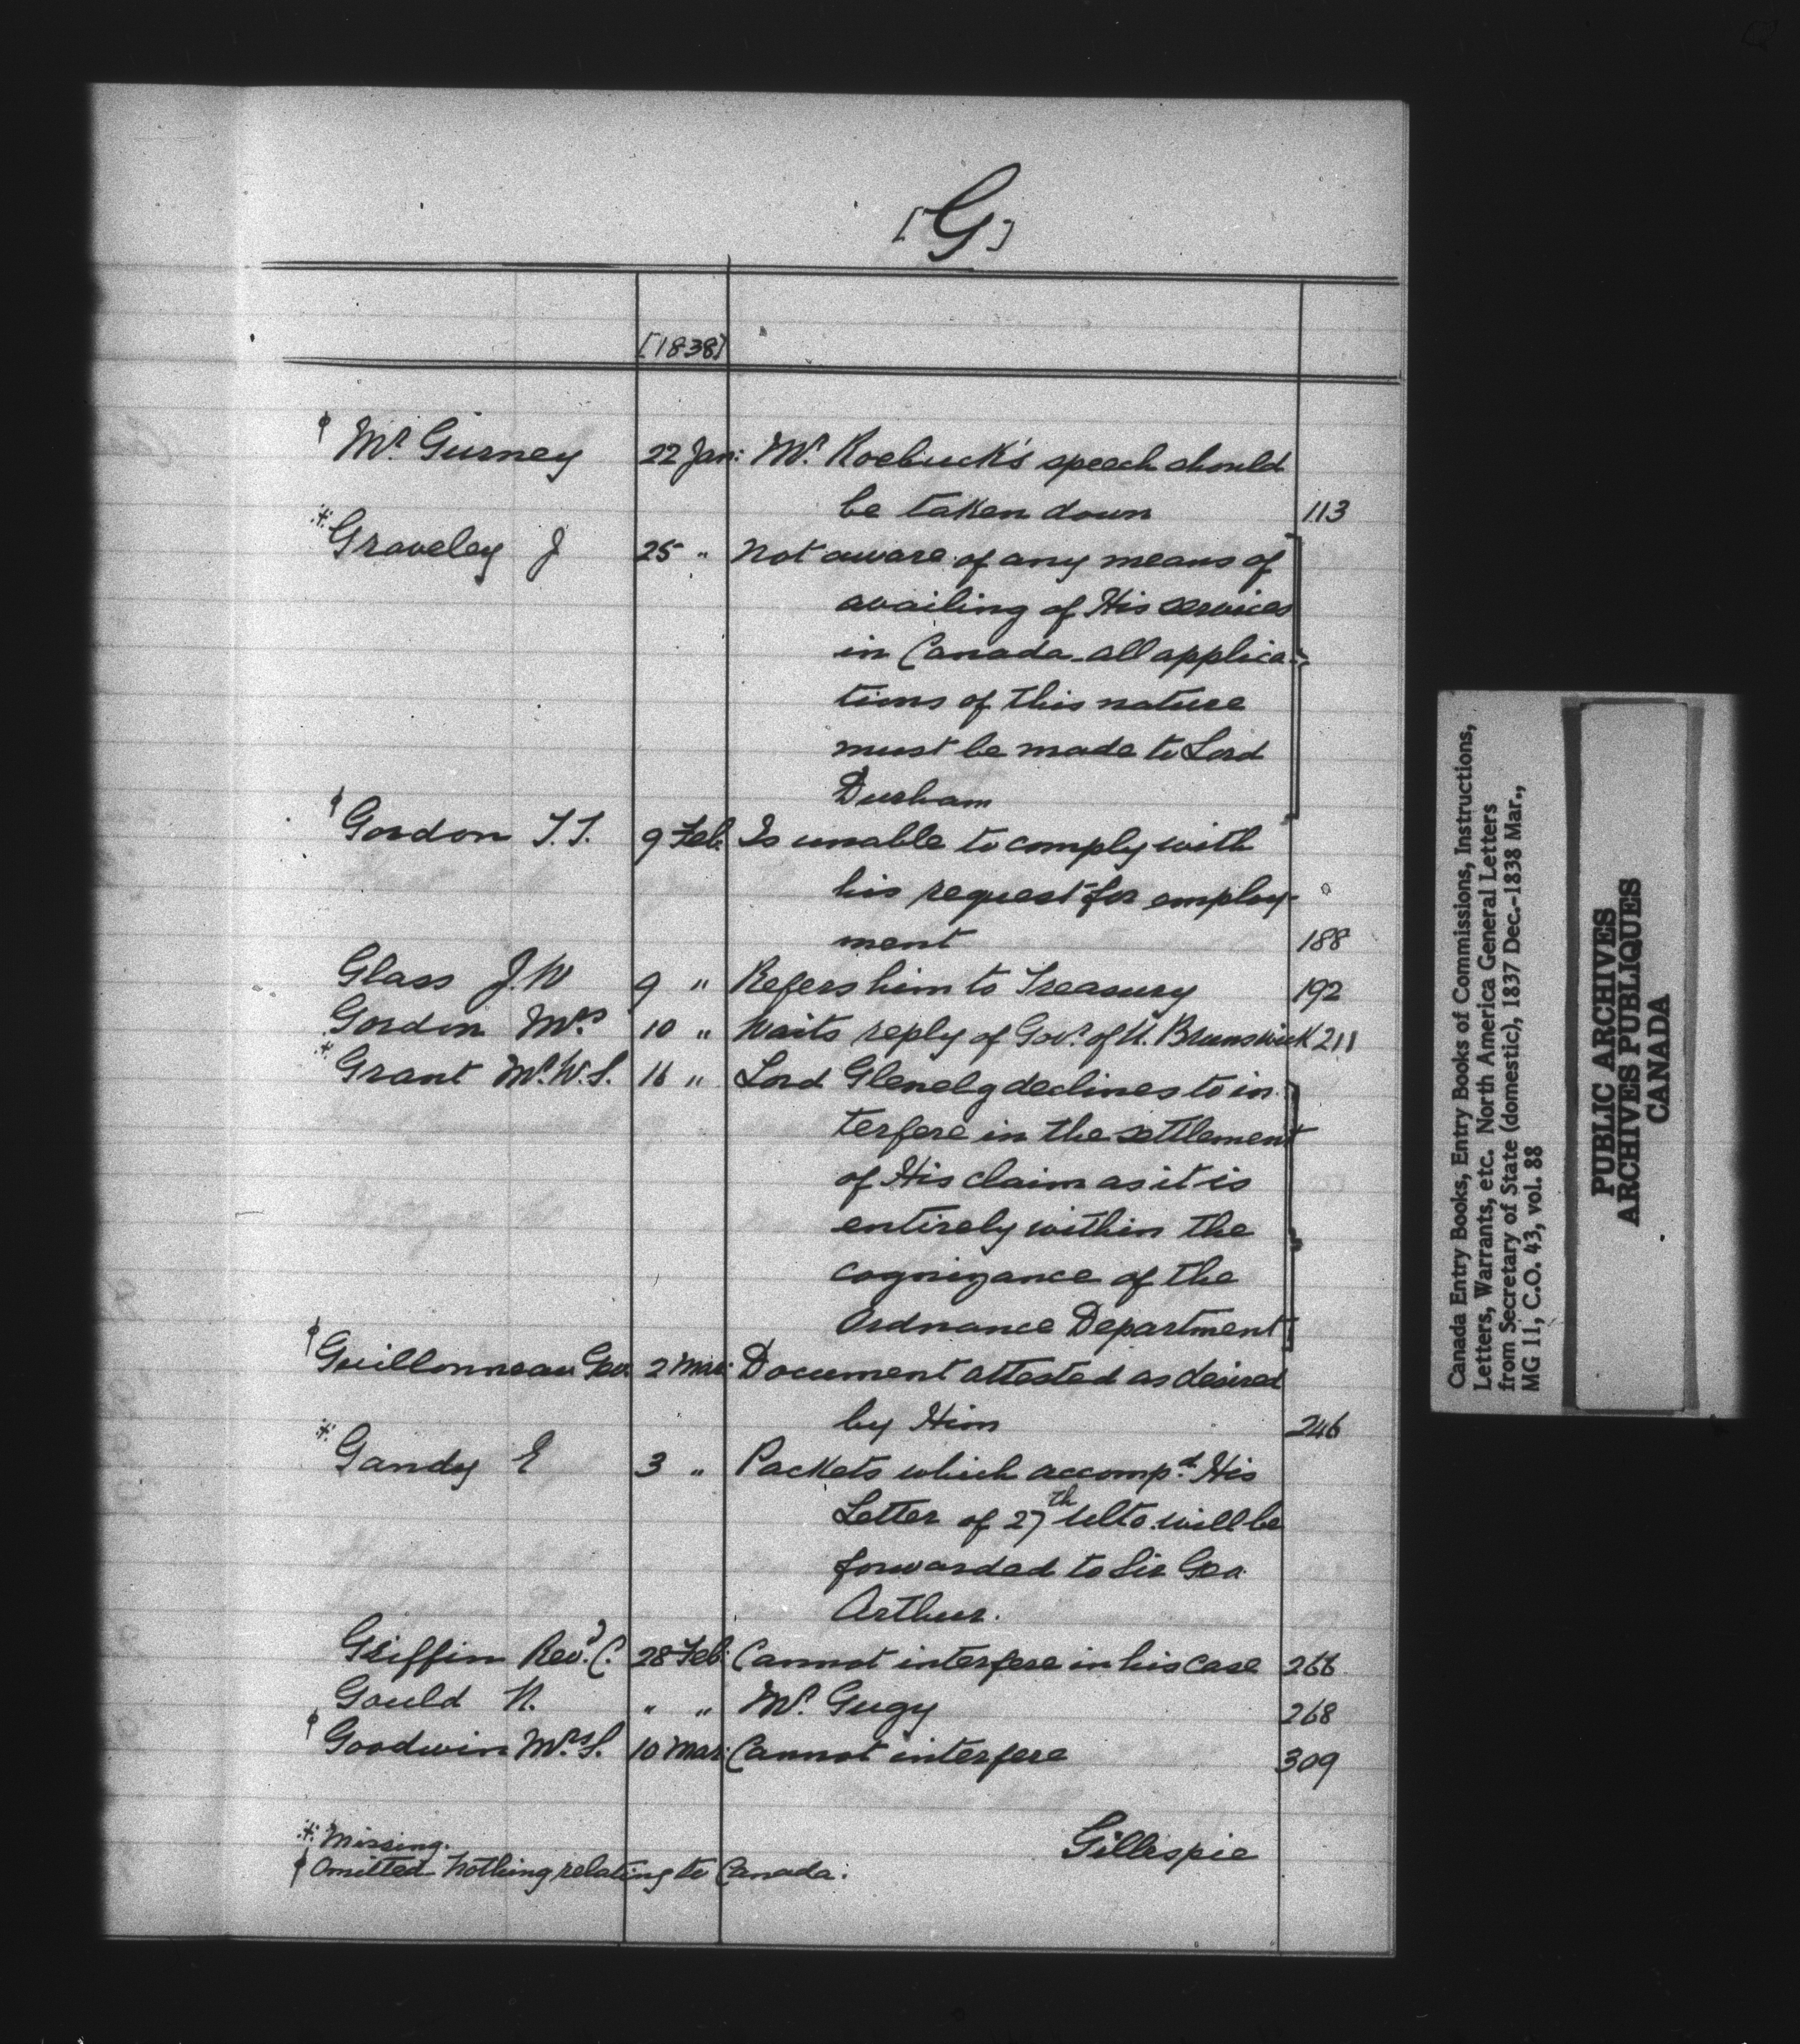 [G]
[1838]
φ Mr. Gurney 22 Jan: Mr. Roebuck's speech should
be taken down 113
※ Graveley J 25 " Not aware of any means of
availing of His services
in Canada - all applica-
tions of this nature
must be made to Lord
Durham
φ Gordon T.T. 9 Feb. Is unable to comply with
his request for employ-
ment 188
Glass J.W 9 " Refers him to Treasury 192
Gordon Mrs 10 " Waits reply of Govr. of N. Brunswick 211
※ Grant Mr. W.S. 16 " Lord Glenelg declines to in-
terfere in the settlement
of His claim as it is
entirely within the
cognizance of the
Ordnance Department
φ Guillonneau Geo. 2 Mar: Document attested as desired
by Him 246
※ Gandy E 3 " Packets which accompd. His
Letter of 27th Ulto. will be
forwarded to Sir Geo.
Arthur.
Griffin Revd. C. 28 Feb: Cannot interfere in his case 266
Gould N. " " Mr. Gugy 268
φ Goodwin Mrs. S. 10 Mar: Cannot interfere 309
※ Missing.
φ Omitted Nothing relating to Canada.
Gillespie
Canada Entry Books, Entry Books of Commissions, Instructions,
Letters, Warrants, etc. North America General Letters
from Secretary of State (domestic), 1837 Dec.-1838 Mar.,
MG 11, C.O. 43, vol. 88
PUBLIC ARCHIVES
ARCHIVES PUBLIQUES
CANADA